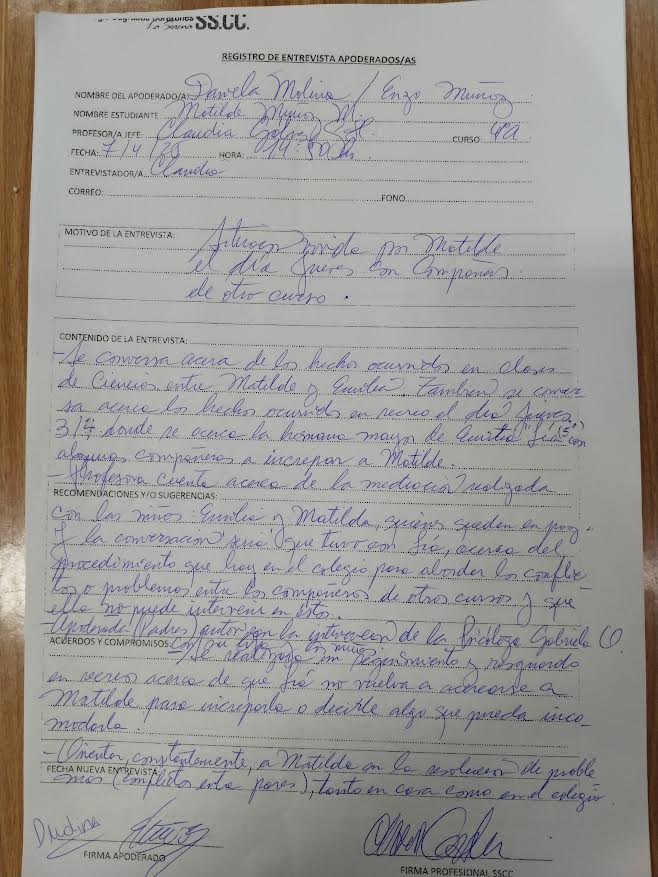 Sagrados Corazones
La Serena SS.CC.
REGISTRO DE ENTREVISTA APODERADOS/AS
NOMBRE DEL APODERADO/A: Daniela Molina / Enzo Muñoz
NOMBRE ESTUDIANTE: Matilde Muñoz M.
PROFESOR/A JEFE: Claudia CURSO: 4ºA
FECHA: 7/4/25 HORA: 14:50 h.
ENTREVISTADOR/A: Claudia
CORREO: FONO
MOTIVO DE LA ENTREVISTA: Situación vivida por Matilde
el día jueves con compañera
de otro curso.
CONTENIDO DE LA ENTREVISTA:
- Se conversa acerca de los hechos ocurridos en clases
de Ciencias entre Matilde y Emilia. También se conver
sa acerca los hechos ocurridos en recreo el día jueves
3/4 donde se acerca la hermana mayor de Emilia "Sía" con
algunos compañeros a increpar a Matilde.
- Profesora cuenta acerca de la mediación realizada
RECOMENDACIONES Y/O SUGERENCIAS:
con las niñas Emilia y Matilda, quienes queden en paz.
Y la conversación seria que tuvo con Sía, acerca del
procedimiento que hay en el colegio para abordar los conflic-
tos o problemas entre los compañeros de otros cursos y que
ella no puede intervenir en éstos.
- Apoderada (Padres) autorizan la intervención de la Psicóloga Gabriela O.
ACUERDOS Y COMPROMISOS: con su hija con niños.
- Se realizará un seguimiento y resguardo
en recreos acerca de que Sía no vuelva a acercarse a
Matilde para increparla o decirle algo que pueda inco-
modarla.
- Orientar, constantemente, a Matilda en la resolución de proble
FECHA NUEVA ENTREVISTA
mas (conflictos entre pares), tanto en casa como en el colegio.
DMolina
FIRMA APODERADO
FIRMA PROFESIONAL SSCC